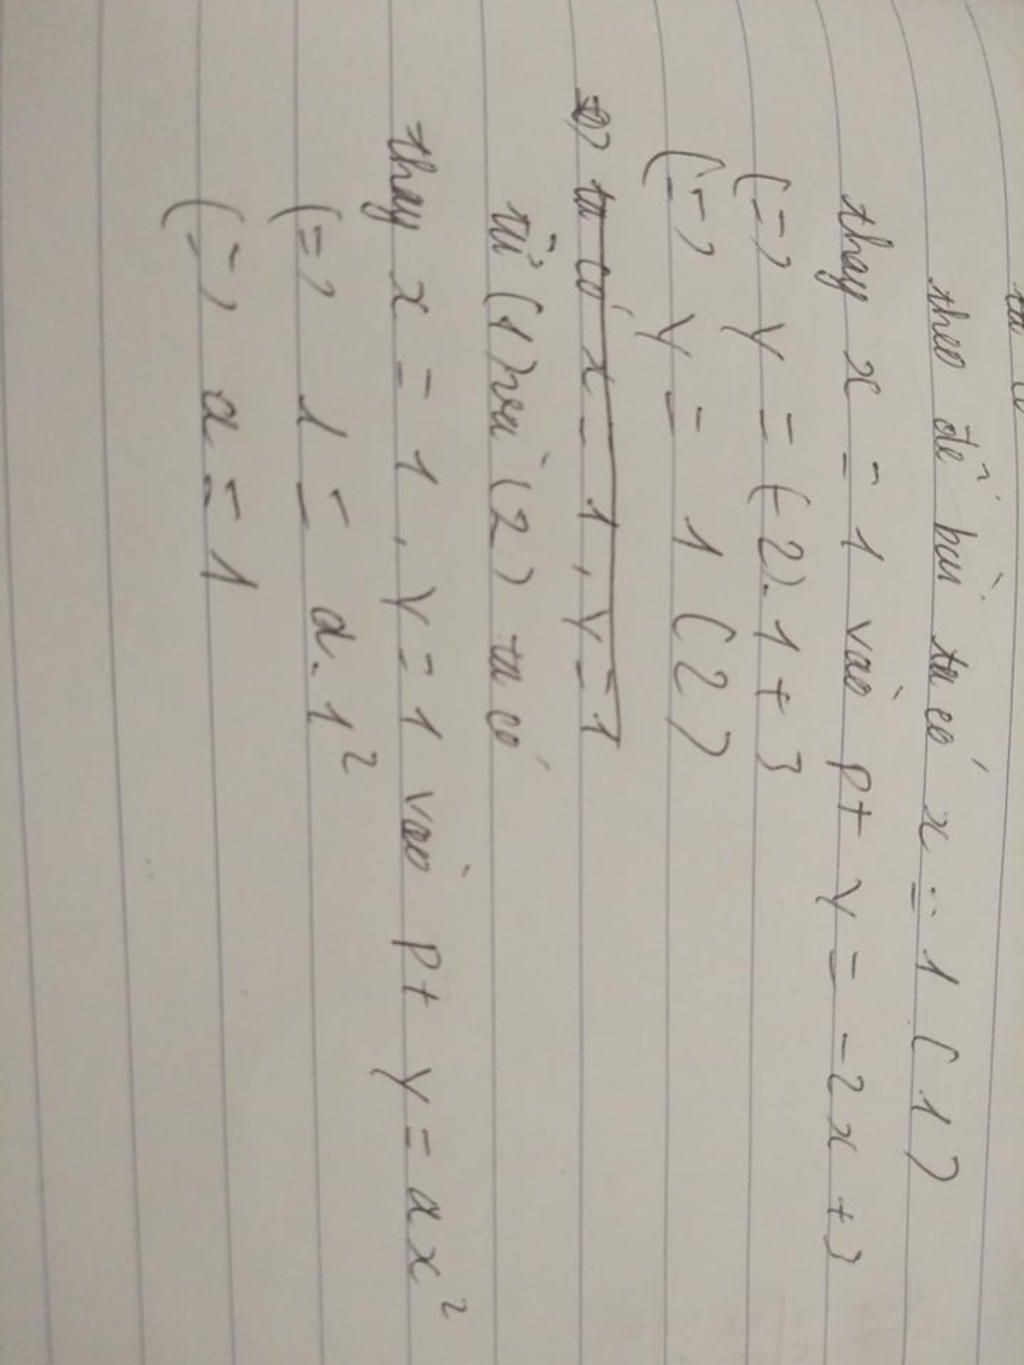 ta có
theo đề bài ta có x = 1 (1)
thay x = 1 vào pt y = -2x + 3
(=) y = (-2).1 + 3
(=) y = 1 (2)
=) ta có x = 1, y = 1
từ (1) và (2) ta có
thay x = 1, y = 1 vào pt y = ax²
(=) 1 = a.1²
(=) a = 1